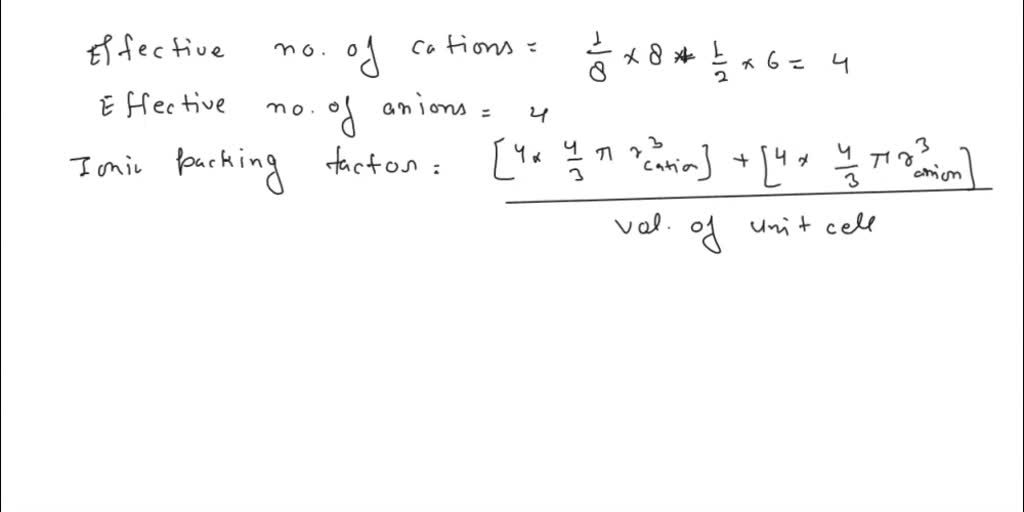 Effective no. of cations = 1/8 × 8 * 1/2 × 6 = 4
Effective no. of anions = 4
Ionic packing factor = [4 × 4/3 π r³cation] + [4 × 4/3 π r³anion]
vol. of unit cell